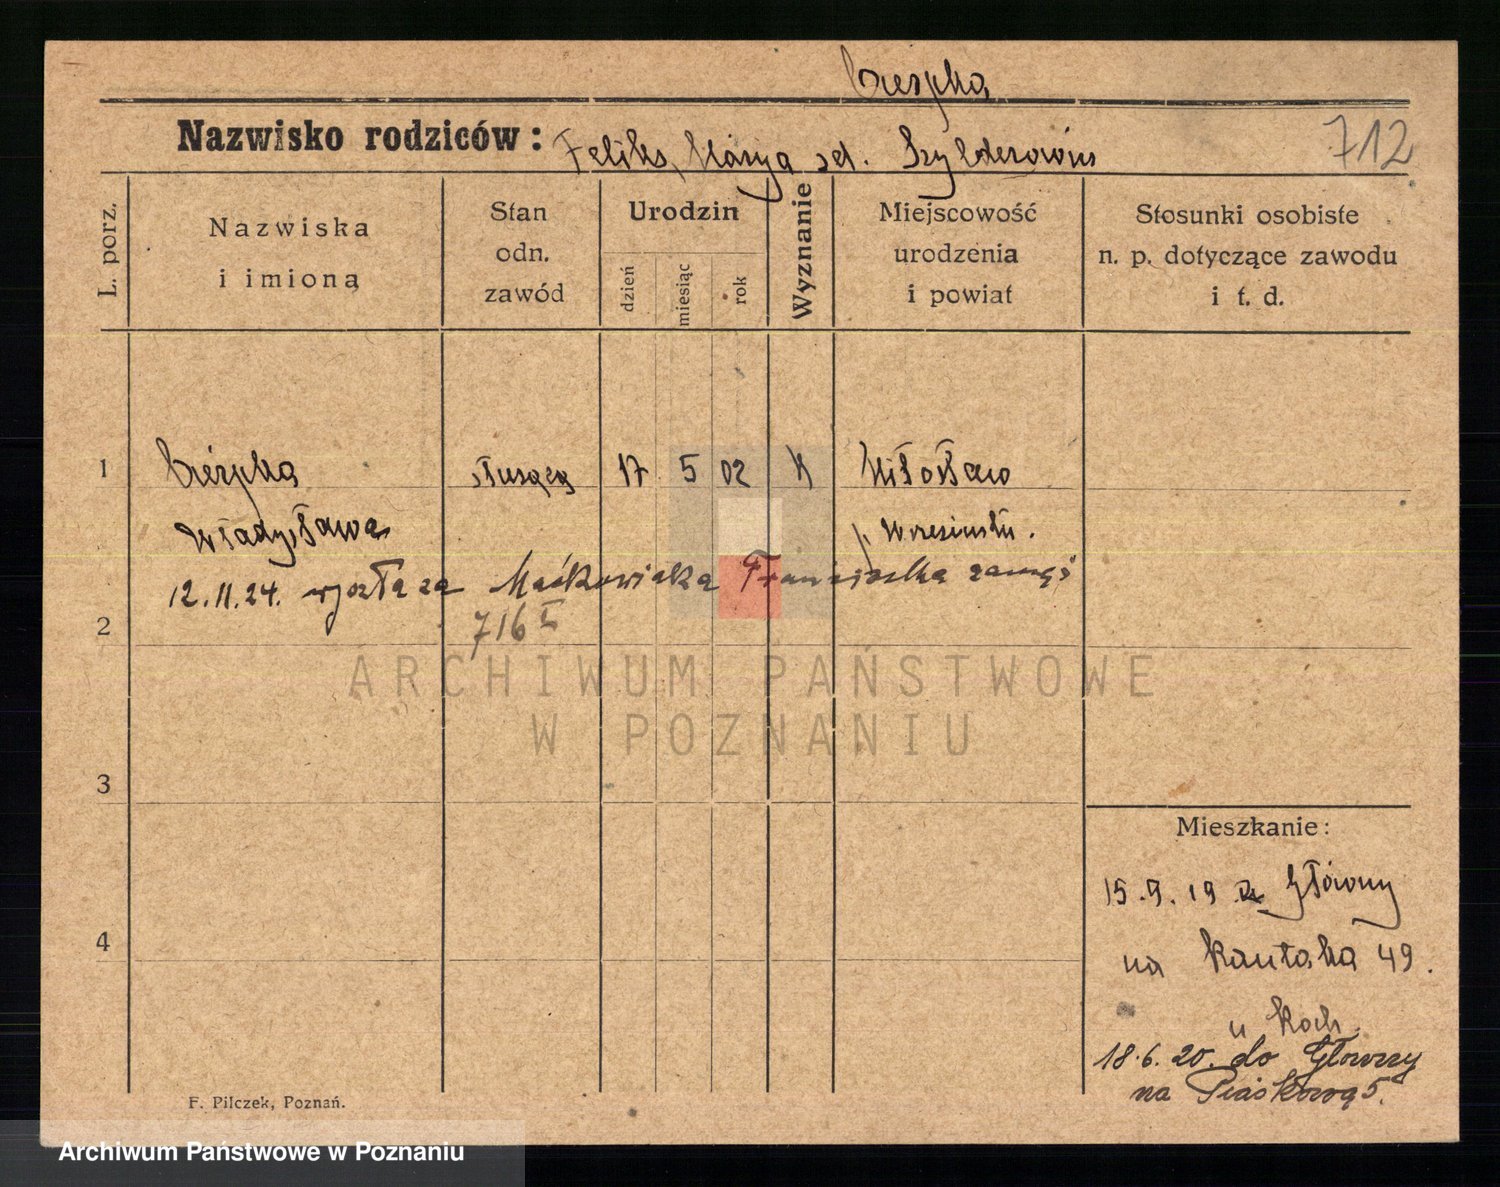 Cierpka
Nazwisko rodziców: Feliks, Marya sd. 712
L. porz.
Nazwiska i imiona
Stan odn. zawód
Urodzin
dzień
miesiąc
rok
Wyznanie
Miejscowość urodzenia i powiat
Stosunki osobiste n. p. dotyczące zawodu i t. d.
1 Cierpka służąca 17 5 02 K Miłosław
Władysława Wrzesiński.
12.11.24. wyszła za Maćkowiaka Franciszka zamąż
2 716 I
ARCHIWUM PAŃSTWOWE
W POZNANIU
3
Mieszkanie:
15.9.19 z Główny
4 na Kantaka 49.
u Koch.
18.6.20. do Główny
na Piaskową 5.
F. Pilczek, Poznań.
Archiwum Państwowe w Poznaniu